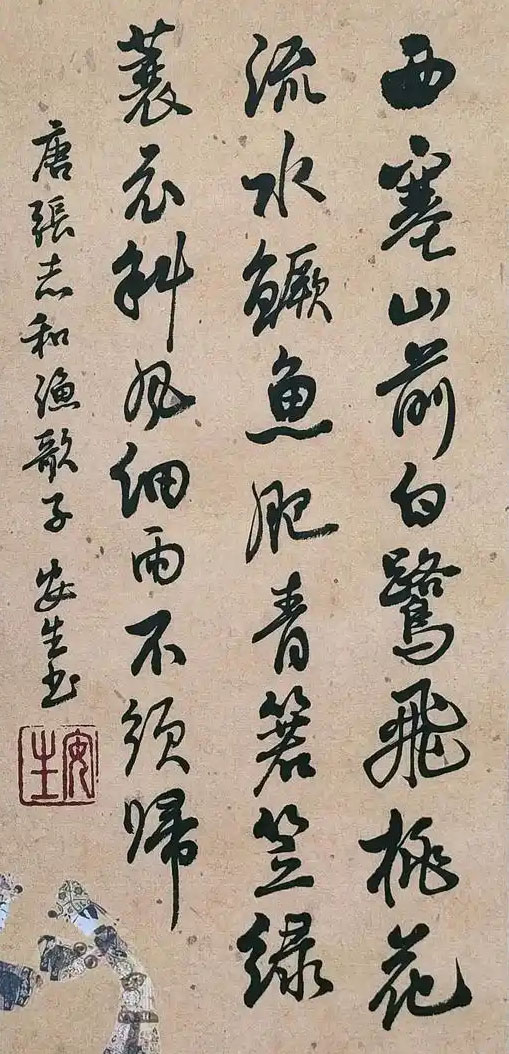 西塞山前白鷺飛桃花
流水鳜魚肥青箬笠綠
蓑衣斜风细雨不須歸
唐張志和渔歌子 安生书
安生